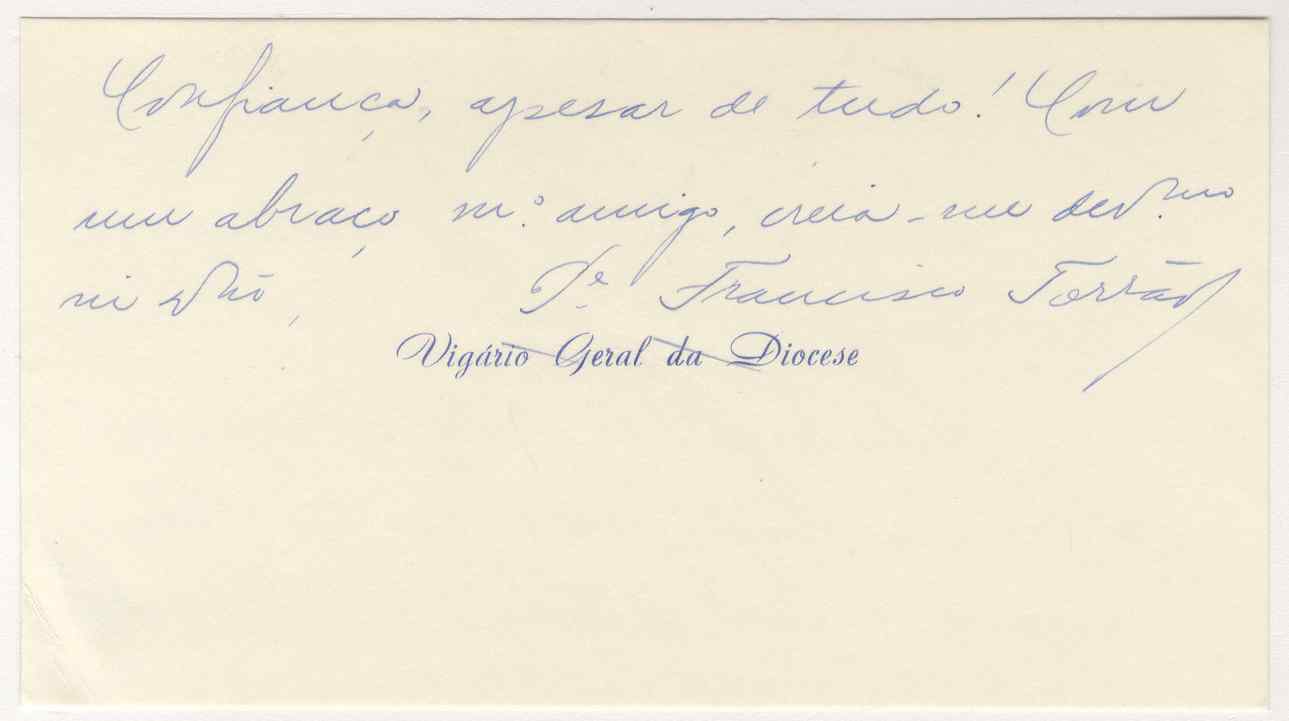 Confiança, apesar de tudo! Com
um abraço m.º amigo, creia-me dev.mo
in Dno, Pe. Francisco Torrão
Vigário Geral da Diocese